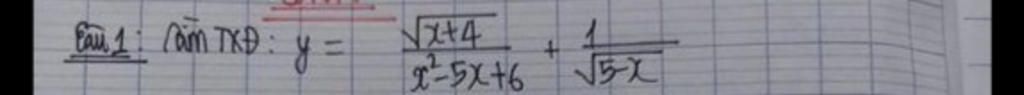 Câu 1: Tìm TXĐ: y = \frac{\sqrt{x+4}}{x^2-5x+6} + \frac{1}{\sqrt{5-x}}